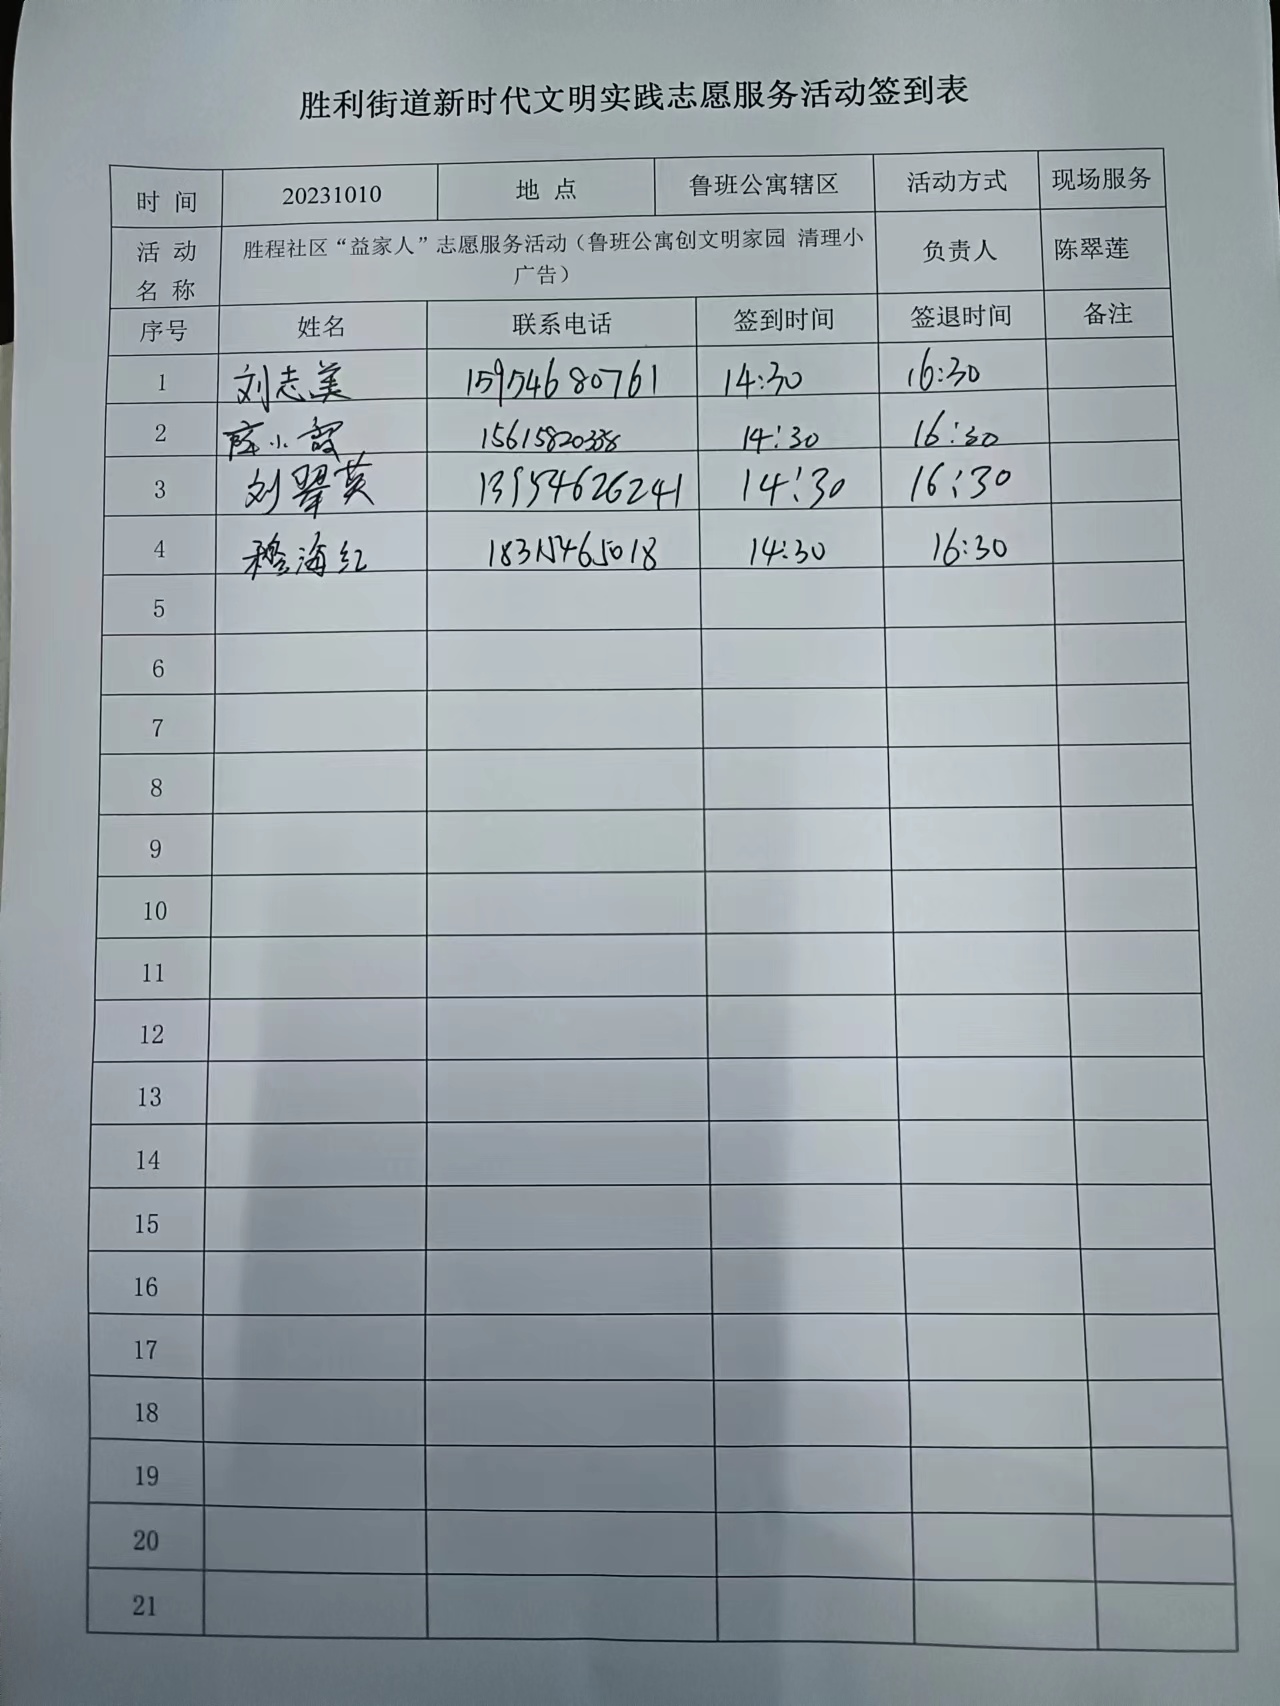 胜利街道新时代文明实践志愿服务活动签到表
时 间 20231010 地 点 鲁班公寓辖区 活动方式 现场服务
活 动 名 称 胜程社区“益家人”志愿服务活动（鲁班公寓创文明家园 清理小 负责人 陈翠莲
广告）
序号 姓名 联系电话 签到时间 签退时间 备注
1 刘志美 15954680761 14:30 16:30
2 小霞 15615820338 14:30 16:30
3 刘翠英 13954626241 14:30 16:30
4 穆海红 18315465018 14:30 16:30
5
6
7
8
9
10
11
12
13
14
15
16
17
18
19
20
21